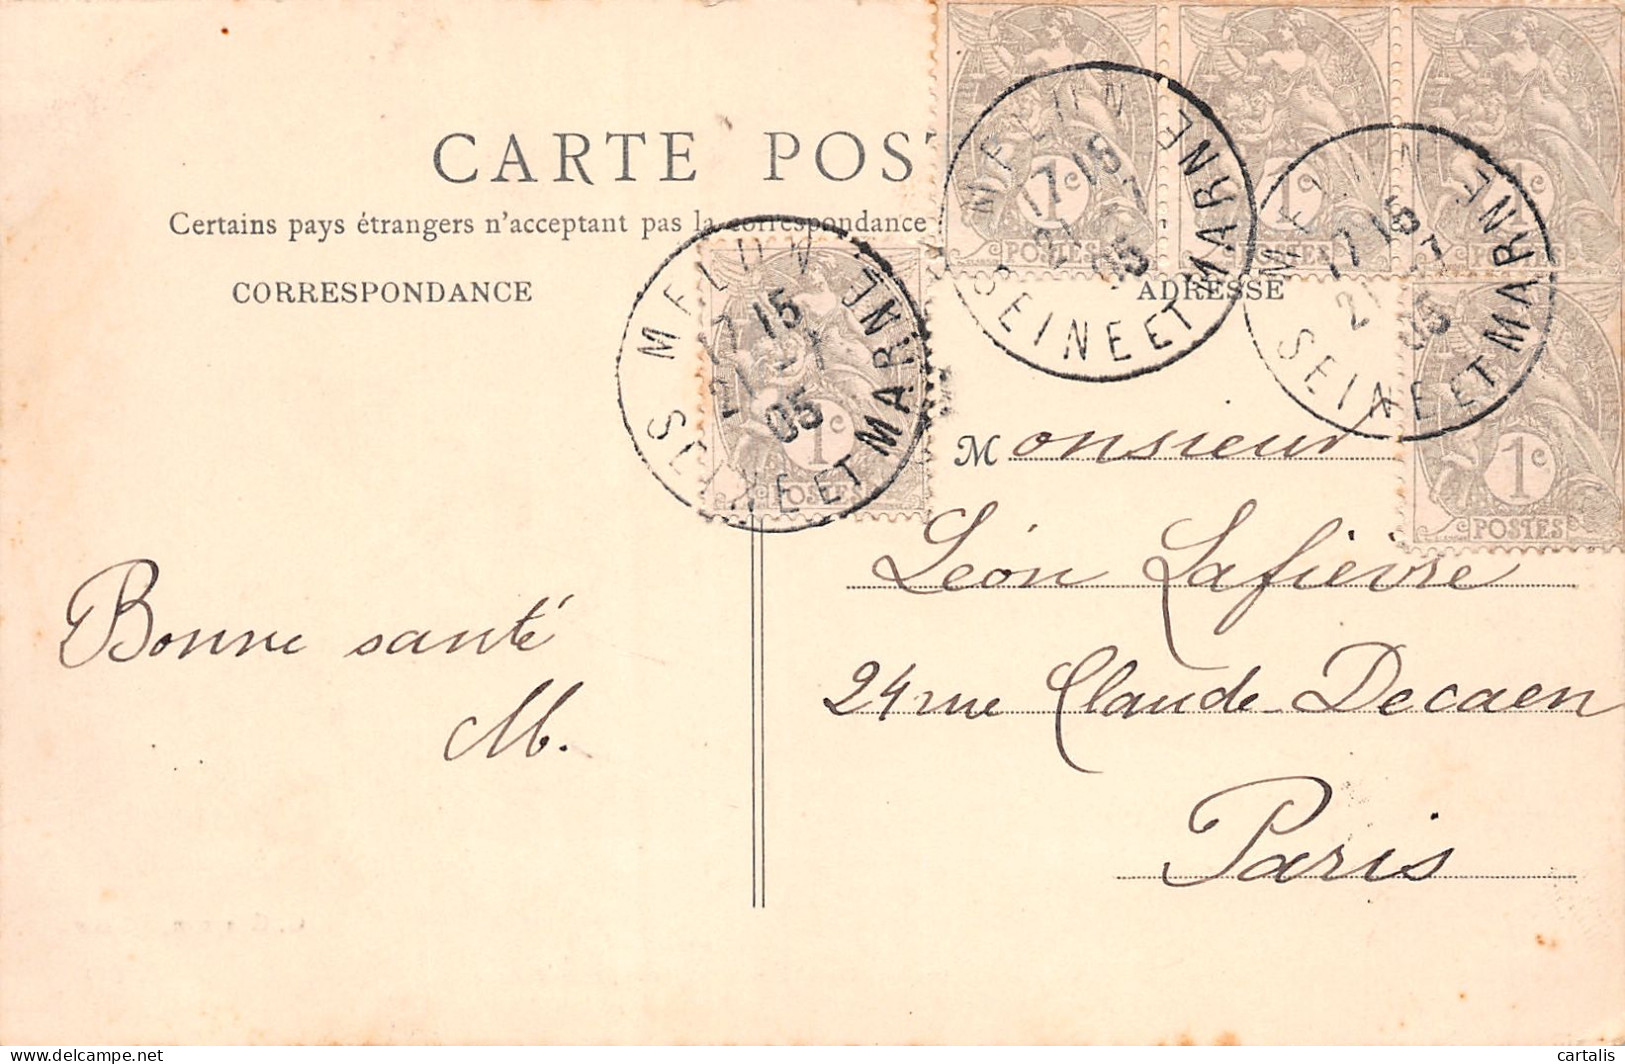 CARTE POS
Certains pays étrangers n'acceptant pas la correspondance
CORRESPONDANCE
ADRESSE
MELUN
17 15
21
05
SEINE ET MARNE
MELUN
17 15
05
SEINE ET MARNE
MELUN
17 15
21
05
SEINE ET MARNE
1c
POSTES
1c
POSTES
1c
1c
POSTES
1c
POSTES
Monsieur
Léon Lafièvre
24 rue Claude Decaen
Paris
Bonne santé
M.
delcampe.net
cartalis